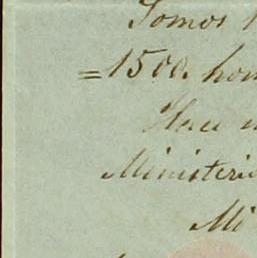 Somos
=1500. hom
Hace
Ministeri
Mi